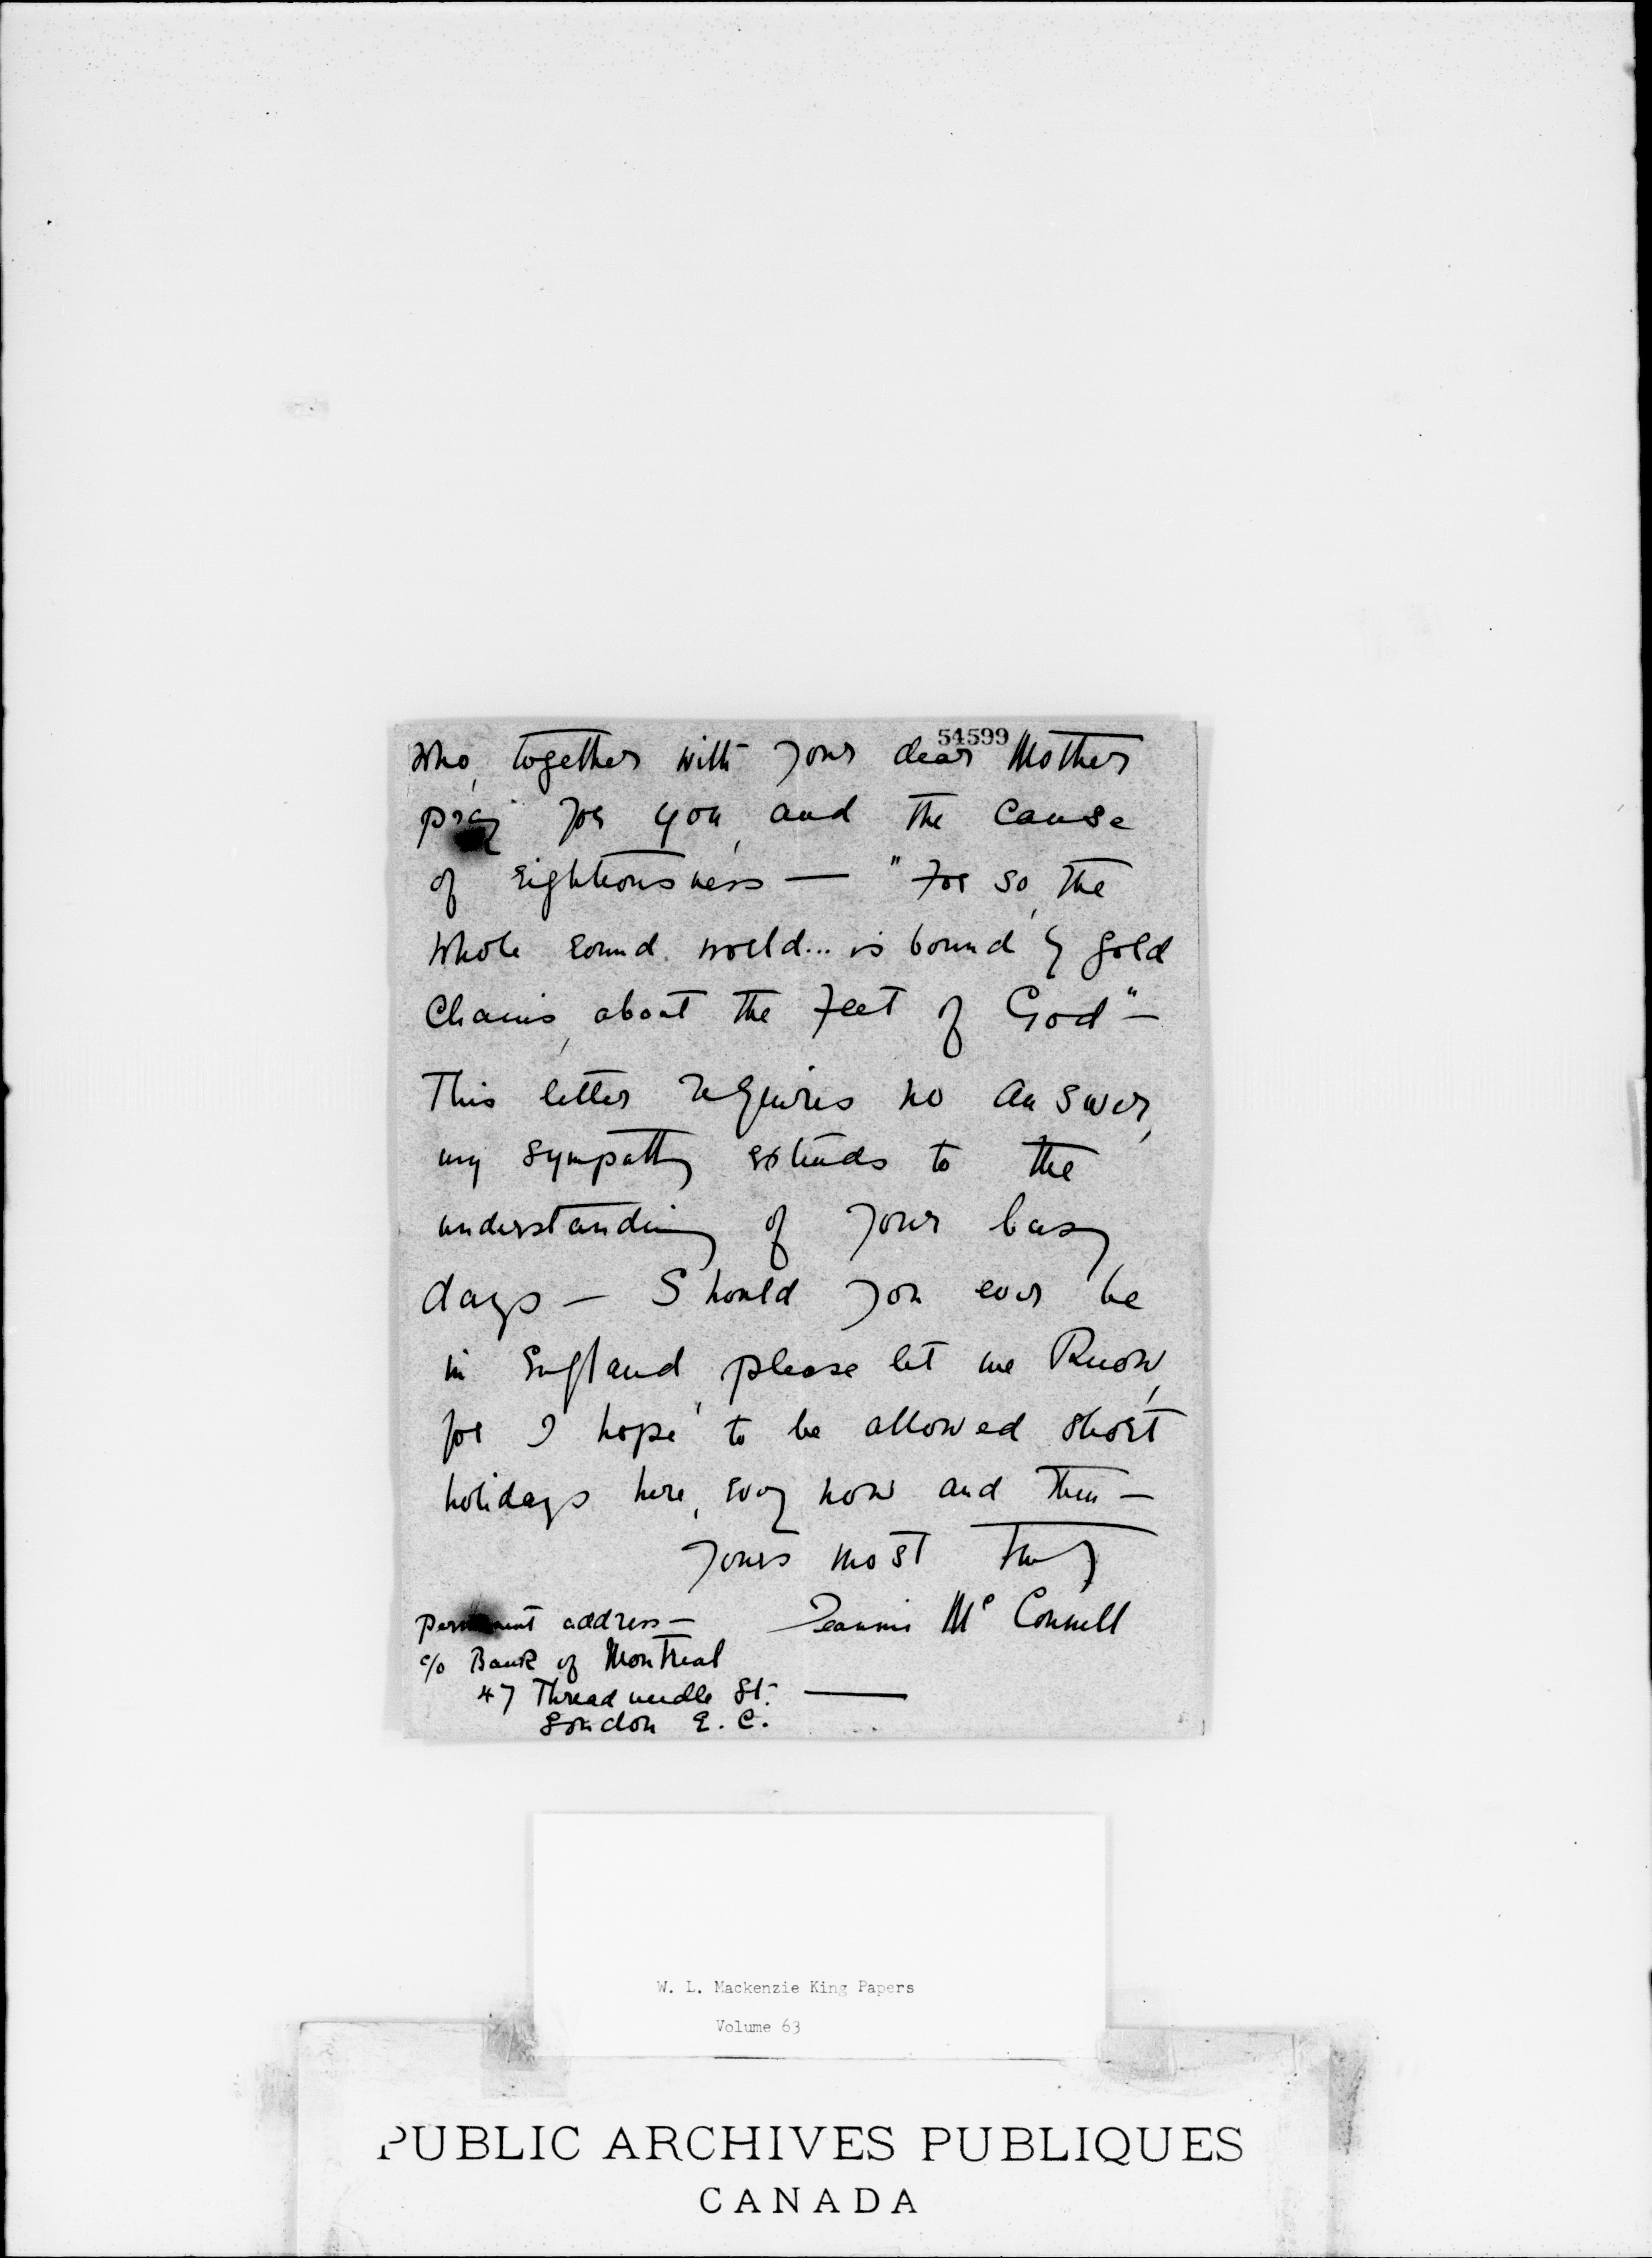 54599
Who, together with your dear Mother
pray for you, and the cause
of righteousness — "For so, the
whole round world... is bound by gold
Chains, about the Feet of God" —
This letter requires no answer,
my sympathy extends to the
understanding of your busy
days — Should you ever be
in England, please let me Know,
for I hope to be allowed short
holidays here, every now and then —
Yours most truly
Jeannie Mc Connell
permanent address —
c/o Bank of Montreal
47 Threadneedle St.
London E. C.
W. L. Mackenzie King Papers
Volume 63
PUBLIC ARCHIVES PUBLIQUES
CANADA